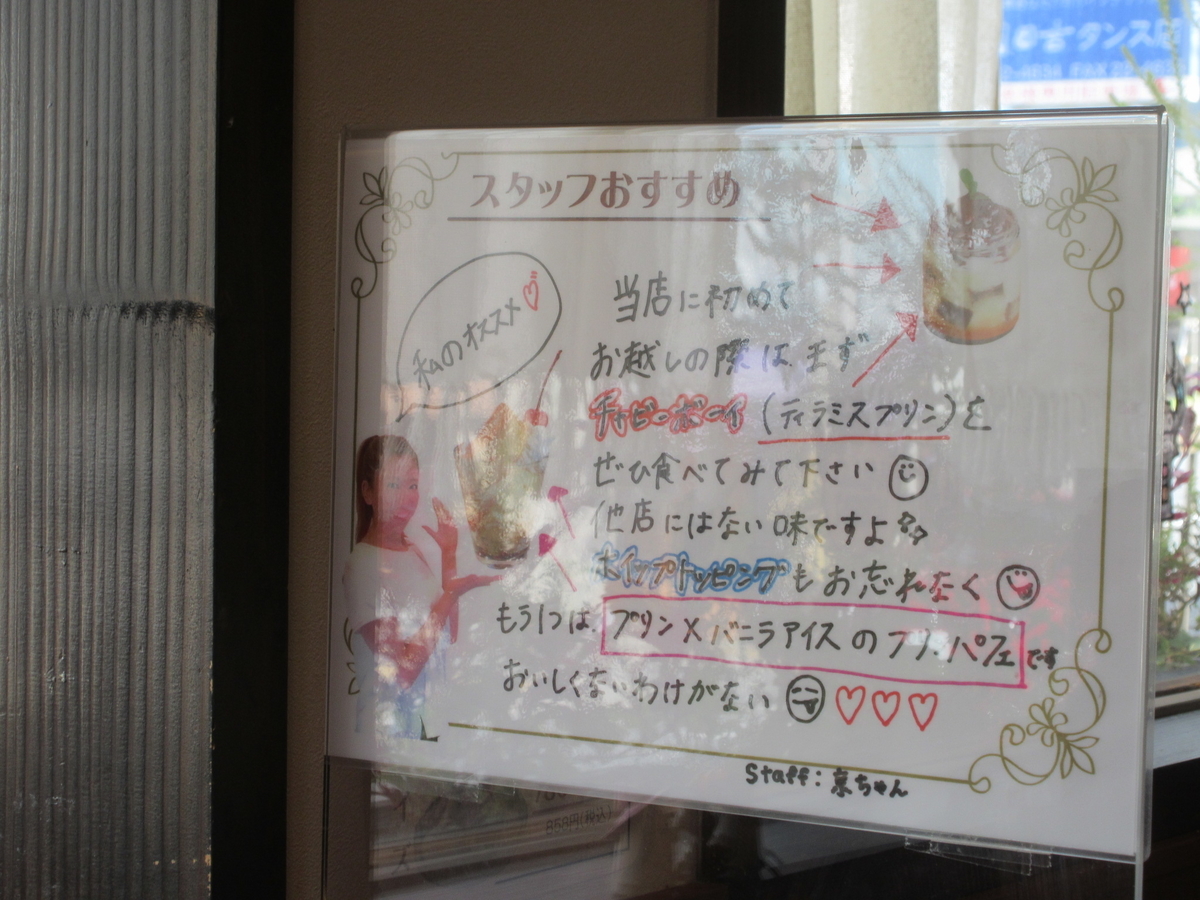 スタッフおすすめ
私のオススメ
当店に初めて
お越しの際は、まず
チャビーボーイ(ティラミスプリン)を
ぜひ食べてみて下さい
他店にはない味ですよ
ホイップトッピングもお忘れなく
もう1つは、プリン×バニラアイスのプリンパフェです
おいしくないわけがない
Staff:京ちゃん
タンス店